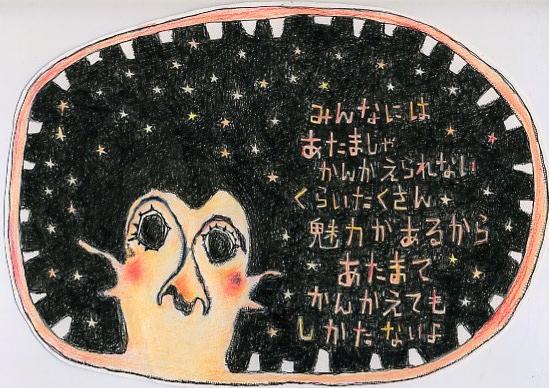 みんなには
あたまじゃ
かんがえられない
くらいたくさん
魅力があるから
あたまで
かんがえても
しかたないよ